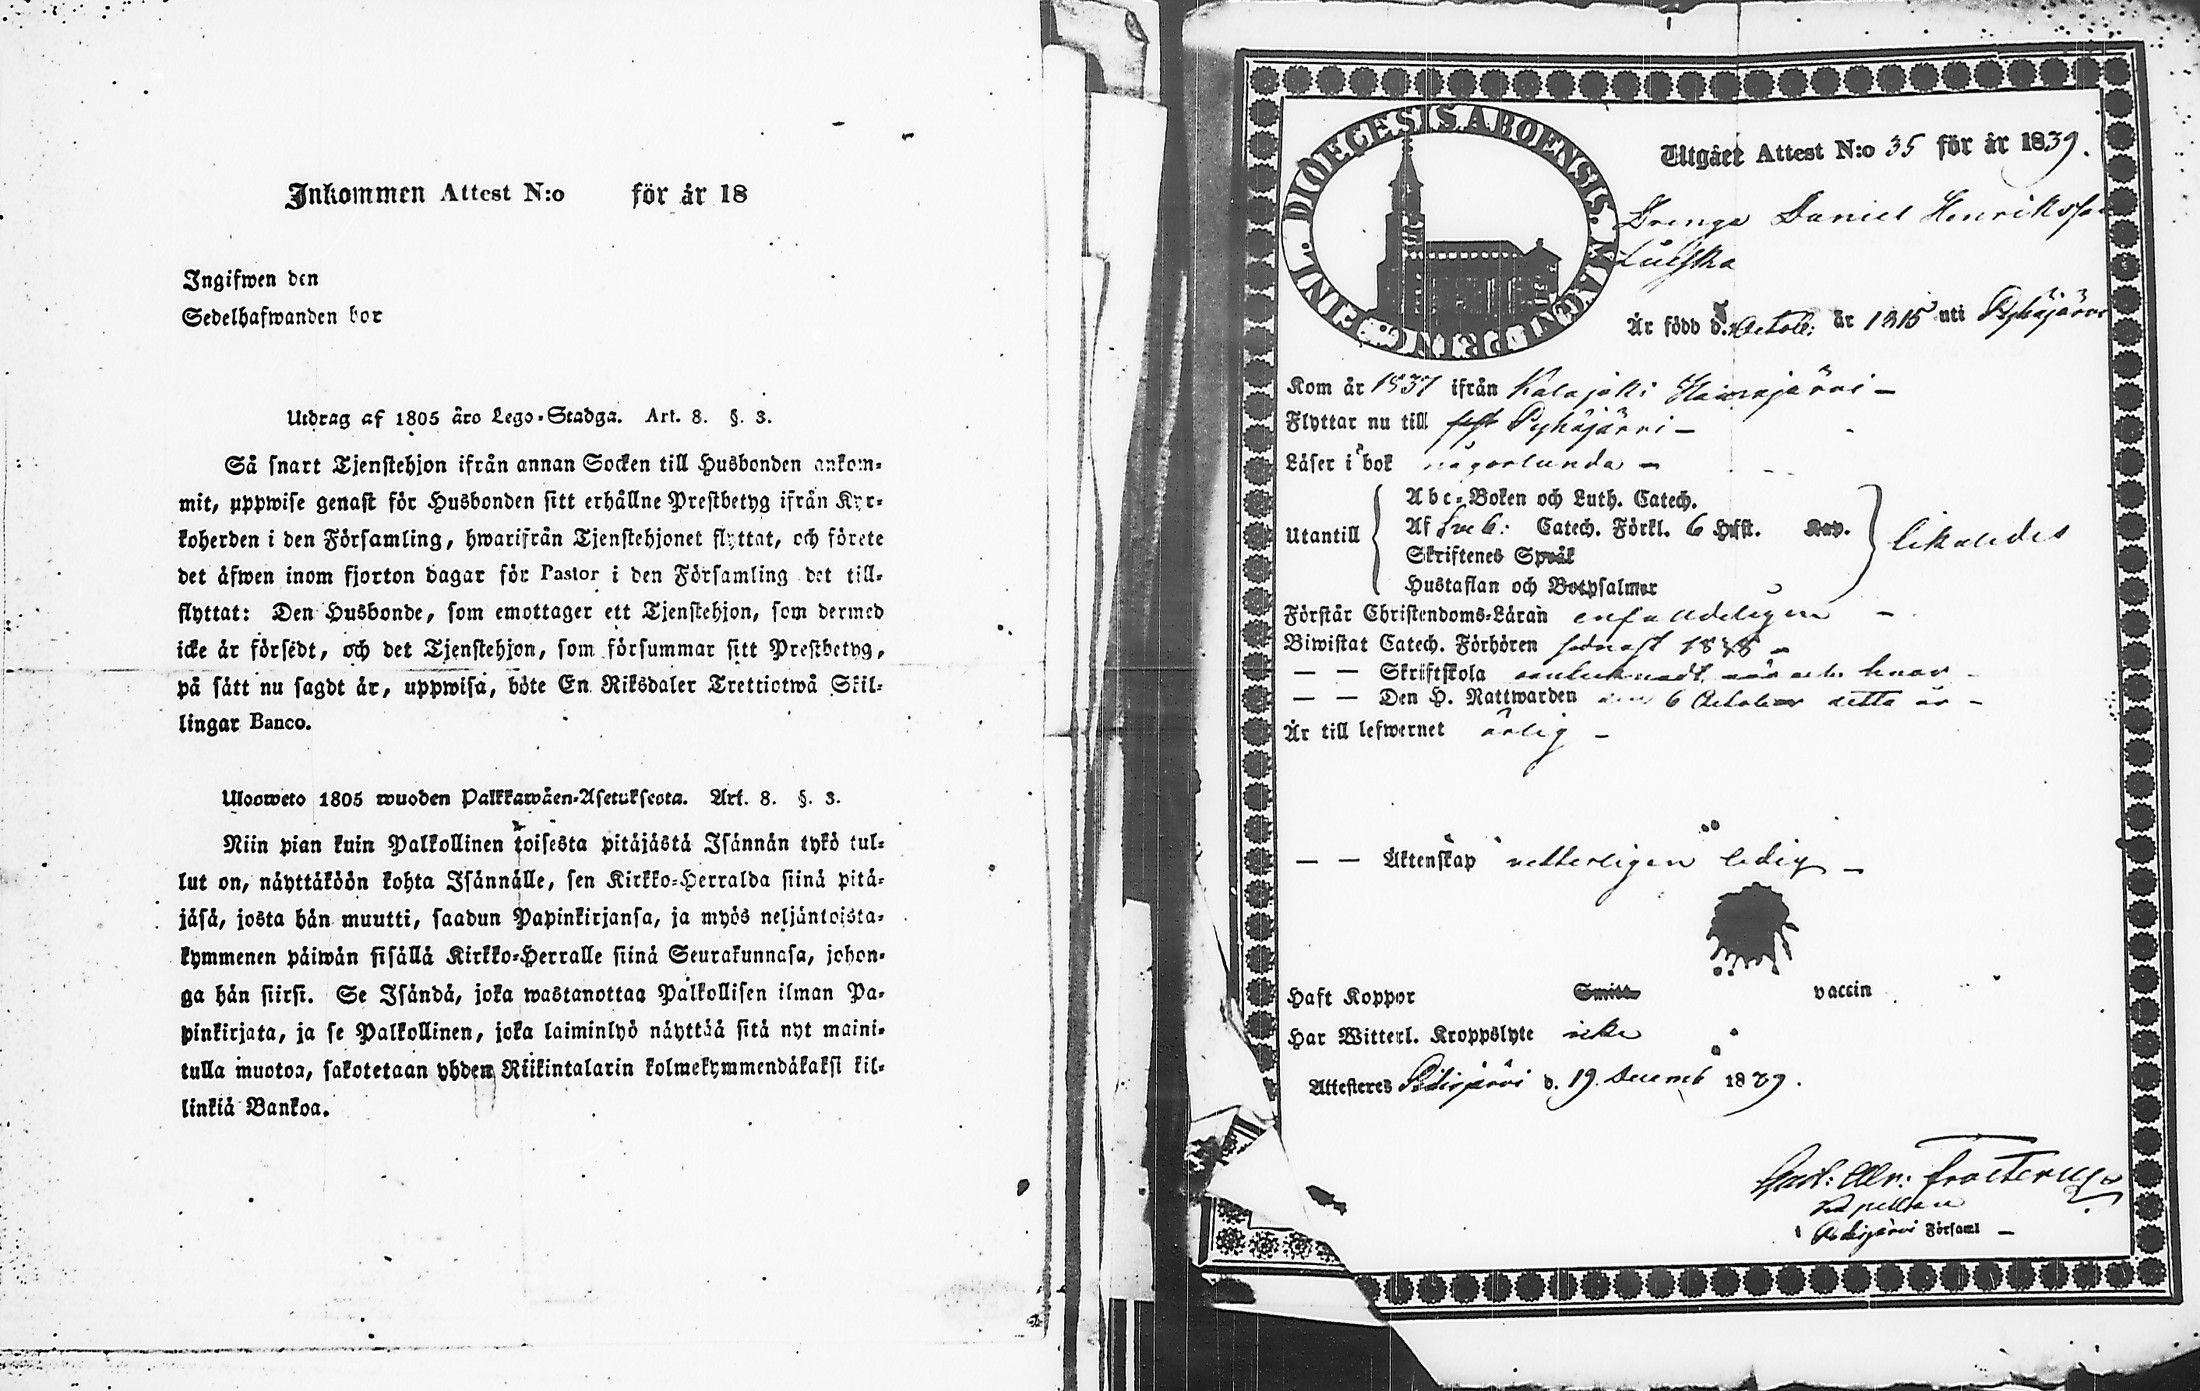 Inkommen Attest N:o för år 18
Ingifwen den
Sedelhafwanden bor
Utdrag af 1805 års Lego-Stadga. Art. 8. §. 3.
Så snart Tjenstehjon ifrån annan Socken till Husbonden ankom-
mit, uppwise genast för Husbonden sitt erhållne Prestbetyg ifrån Kyr-
koherden i den Församling, hwarifrån Tjenstehjonet flyttat, och förete
det äfwen inom fjorton dagar för Pastor i den Församling det till-
flyttat: Den Husbonde, som emottager ett Tjenstehjon, som dermed
icke är försedt, och det Tjenstehjon, som försummar sitt Prestbetyg,
på sätt nu sagdt är, uppwisa, böte En Riksdaler Trettiotwå Skil-
lingar Banco.
Ulosweto 1805 wuoden Palkkawäen-Asetuksesta. Art. 8. §. 3.
Niin pian kuin Palkollinen toisesta pitäjästä Isännän tykö tul-
lut on, näyttäköön kohta Isännälle, sen Kirkko-Herralda siinä pitä-
jäsä, josta hän muutti, saadun Papinkirjansa, ja myös neljäntoista-
kymmenen päiwän sisällä Kirkko-Herralle siinä Seurakunnasa, johon-
ga hän siirsi. Se Isändä, joka wastanottaa Palkollisen ilman Pa-
pinkirjata, ja se Palkollinen, joka laiminlyö näyttää sitä nyt maini-
tulla muotoa, sakotetaan yhden Riikintalarin kolmekymmendäkaksi kil-
linkiä Bankoa.
DIOECESIS ABOENSIS. MAGNI PRINC. FINL.
Utgået Attest N:o 35 för år 1839.
Drengen Daniel Henriksson
Är född d. Octob: år 1815 uti Pyhäjärvi
Kom år 1837 ifrån Kalajoki Haapajärvi -
Flyttar nu till Pyhäjärvi -
Läser i bok någorlunda -
Utantill
Abc-Boken och Luth. Catech.
Af Sveb: Catech. Förkl. 6 Hfst. Kap.
Skriftenes Språk
Hustaflan och Botpsalmer
likaledes
Förstår Christendoms-Läran enfaldeligen -
Biwistat Catech. Förhören sednast 1838 -
— — Skriftskola
— — Den H. Nattwarden den 6 October detta år -
Är till lefwernet ärlig -
— — Äktenskap vetterligen ledig -
Haft Koppor Smitt. vaccin
Har Witterl. Kroppslyte icke
Attesteras Pidisjärvi d. 19 Decemb 1839.
Frosterus
Kapellan
i Pidisjärvi Församl -